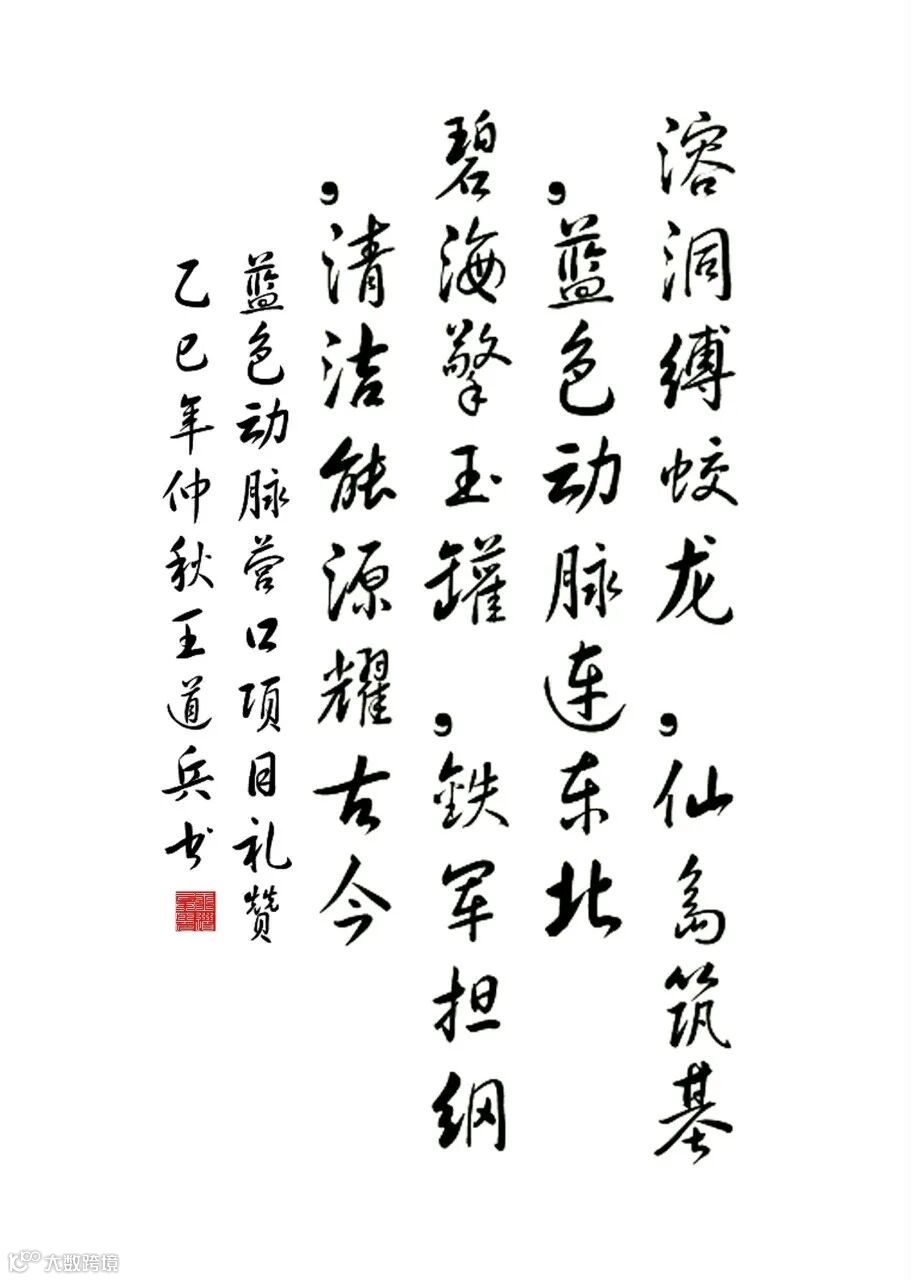 溶洞缚蛟龙，仙岛筑基
，蓝色动脉连东北
碧海擎玉罐，鉄军担纲
，清洁能源耀古今
蓝色动脉营口项目礼赞
乙巳年仲秋王道兵书
大数跨境